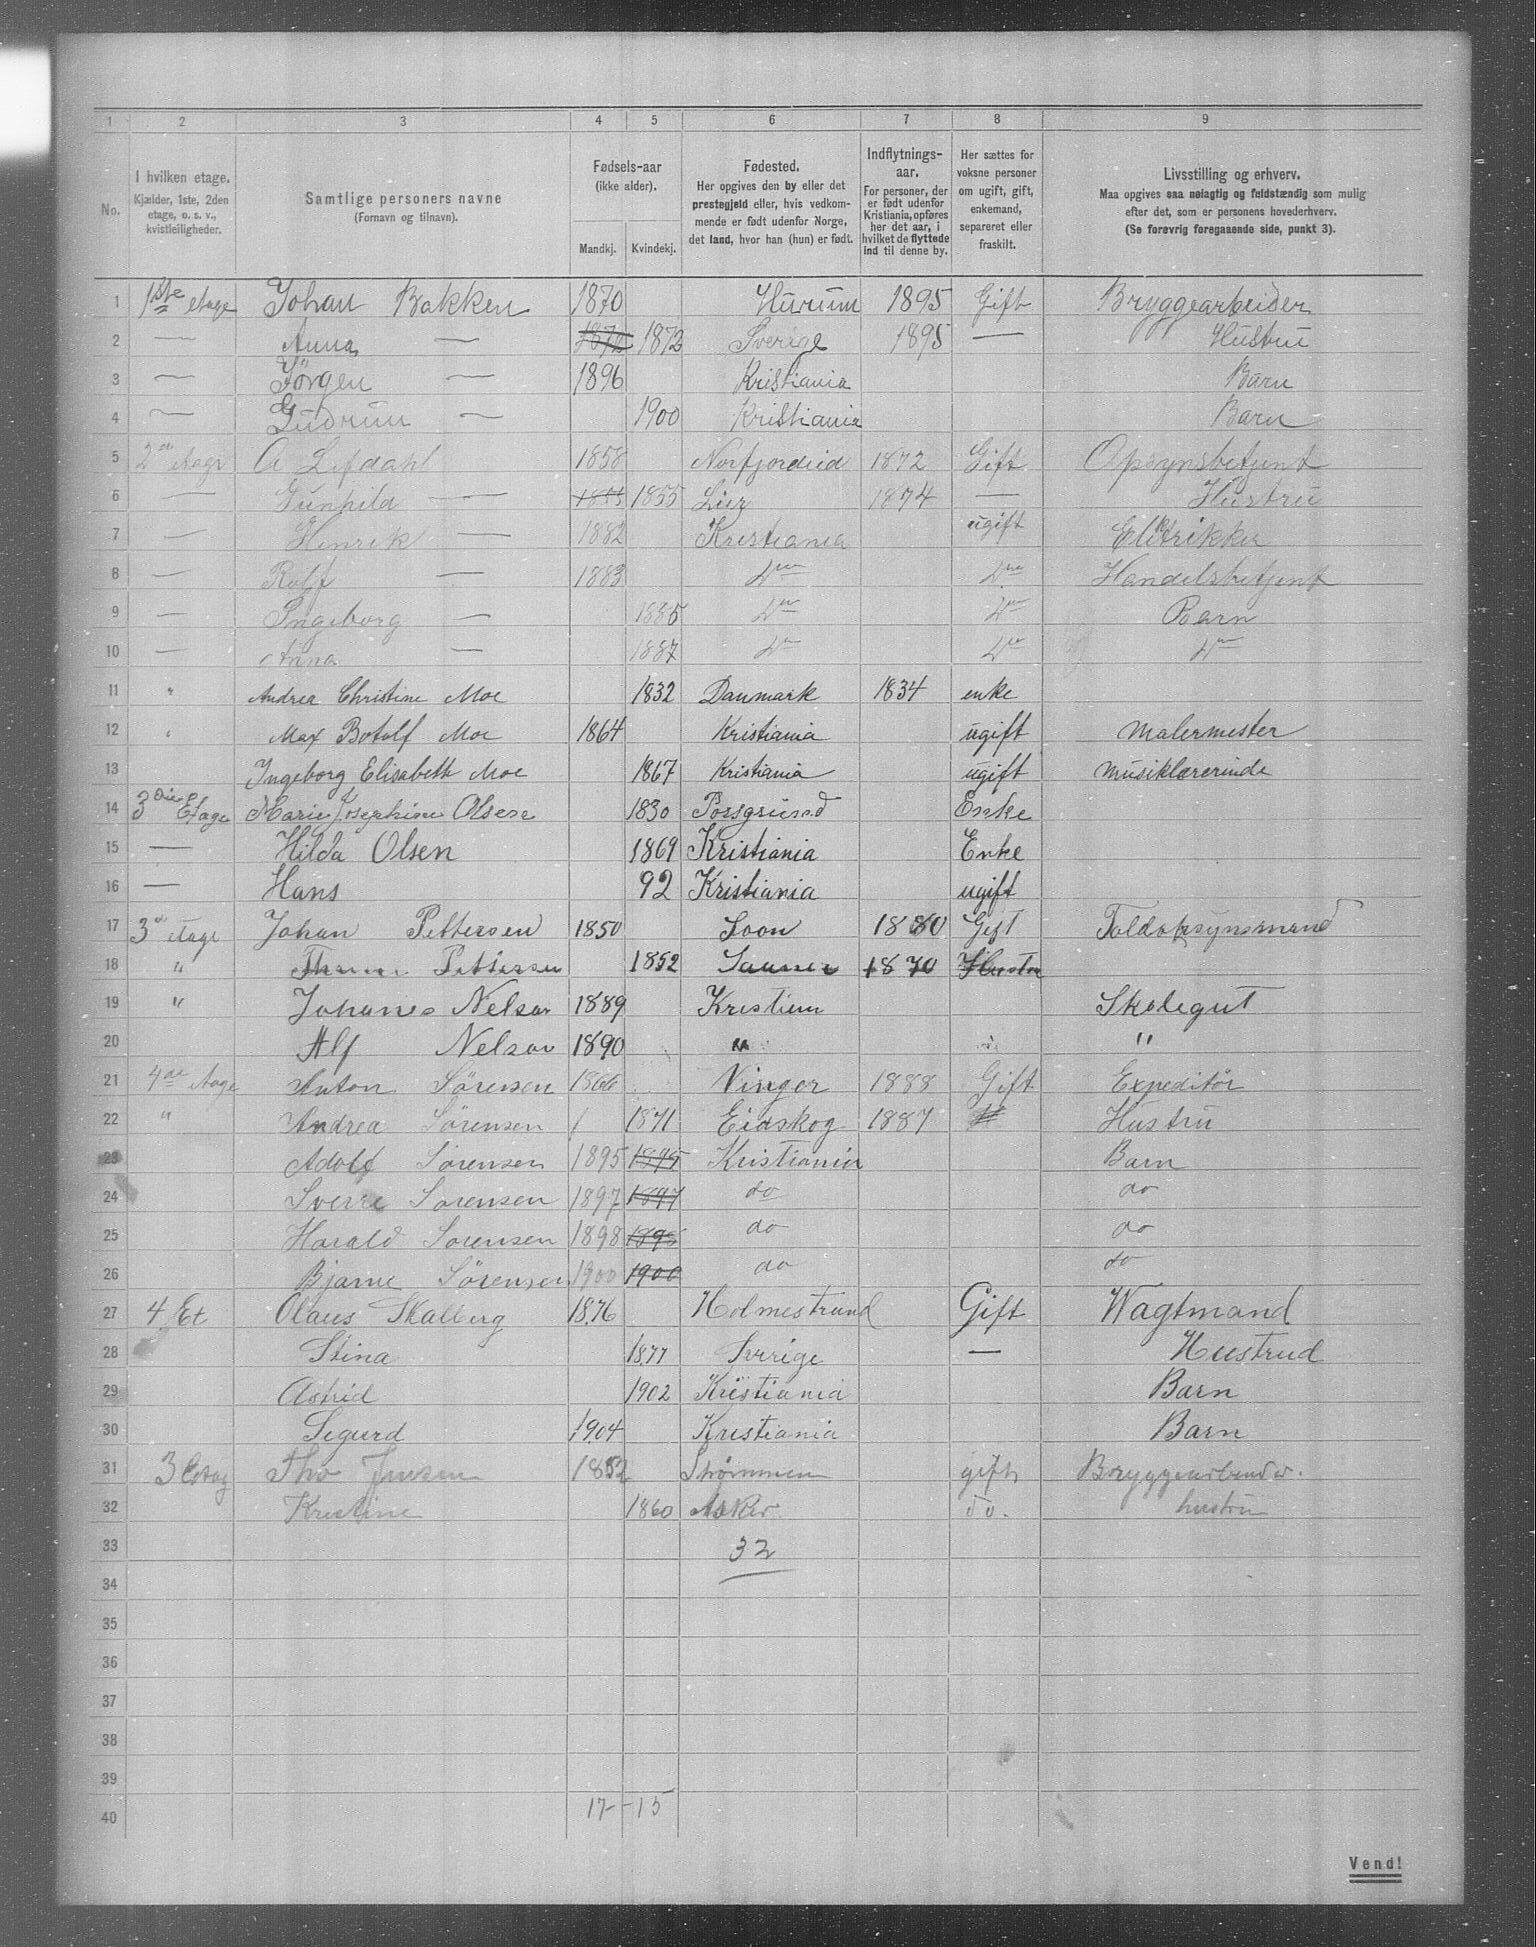 1 2 3 4 5 6 7 8 9
No.
I hvilken etage.
Kjælder, 1ste, 2den
etage, o. s. v.,
kvistleiligheder.
Samtlige personers navne
(Fornavn og tilnavn).
Fødsels-aar
(ikke alder).
Mandkj. Kvindekj.
Fødested.
Her opgives den by eller det
prestegjeld eller, hvis vedkom-
mende er født udenfor Norge,
det land, hvor han (hun) er født.
Indflytnings-
aar.
For personer, der
er født udenfor
Kristiania, opføres
her det aar, i
hvilket de flyttede
ind til denne by.
Her sættes for
voksne personer
om ugift, gift,
enkemand,
separeret eller
fraskilt.
Livsstilling og erhverv.
Maa opgives saa nøiagtig og fuldstændig som mulig
efter det, som er personens hovederhverv.
(Se forøvrig foregaaende side, punkt 3).
1 1ste etage Johan Bakken 1870 Hurum 1895 Gift Bryggearbeider
2 — Anna — 1872 1872 Sverige 1895 — Hustru
3 — Jörgen — 1896 Kristiania Barn
4 — Gudrun — 1900 Kristiania Barn
5 2den etage A Lefdahl 1858 Norfjordeid 1872 Gift Opsynsbetjent
6 — Gunhild — 1855 1855 Lier 1874 — Hustru
7 — Henrik — 1882 Kristiania ugift Elktrikker
8 — Rolf — 1883 Do Do Handelsbetjent
9 — Ingeborg — 1885 Do Do Barn
10 — Anna — 1887 Do Do Do
11 " Andrea Christine Moe 1832 Danmark 1834 enke
12 " Max Botolf Moe 1864 Kristiania ugift Malermester
13 Ingeborg Elisabeth Moe 1867 Kristiania ugift Musiklærerinde
14 3die Etage Marie Josephine Olsen 1830 Porsgrund Enke
15 — Hilda Olsen 1869 Kristiania Enke
16 — Hans 92 Kristiania ugift
17 3d etage Johan Pettersen 1850 Soon 1880 Gift Toldopsynsmand
18 " Pettersen 1852 1870 Hustru
19 " Johanes Nelson 1889 Kristian Skolegut
20 Alf Nelson 1890 " "
21 4de etage Anton Sørensen 1866 Vinger 1888 Gift Expeditør
22 " Andrea Sørensen 1 1871 Eidskog 1887 " Hustru
23 Adolf Sørensen 1895 1895 Kristiania Barn
24 Sverre Sørensen 1897 1897 do do
25 Harald Sørensen 1898 1898 do do
26 Bjarne Sørensen 1900 1900 do do
27 4 Et Olaus Skalberg 1876 Holmestrand Gift Wagtmand
28 Stina 1877 Sverige — Hustrud
29 Astrid 1902 Kristiania Barn
30 Sigurd 1904 Kristiania Barn
31 3 Etag Tho Jensen 1852 Strømmen gift Bryggearbeider.
32 Kristine 1860 Asker do. hustru
33 32
34
35
36
37
38
39
40 17 - 15
Vend!